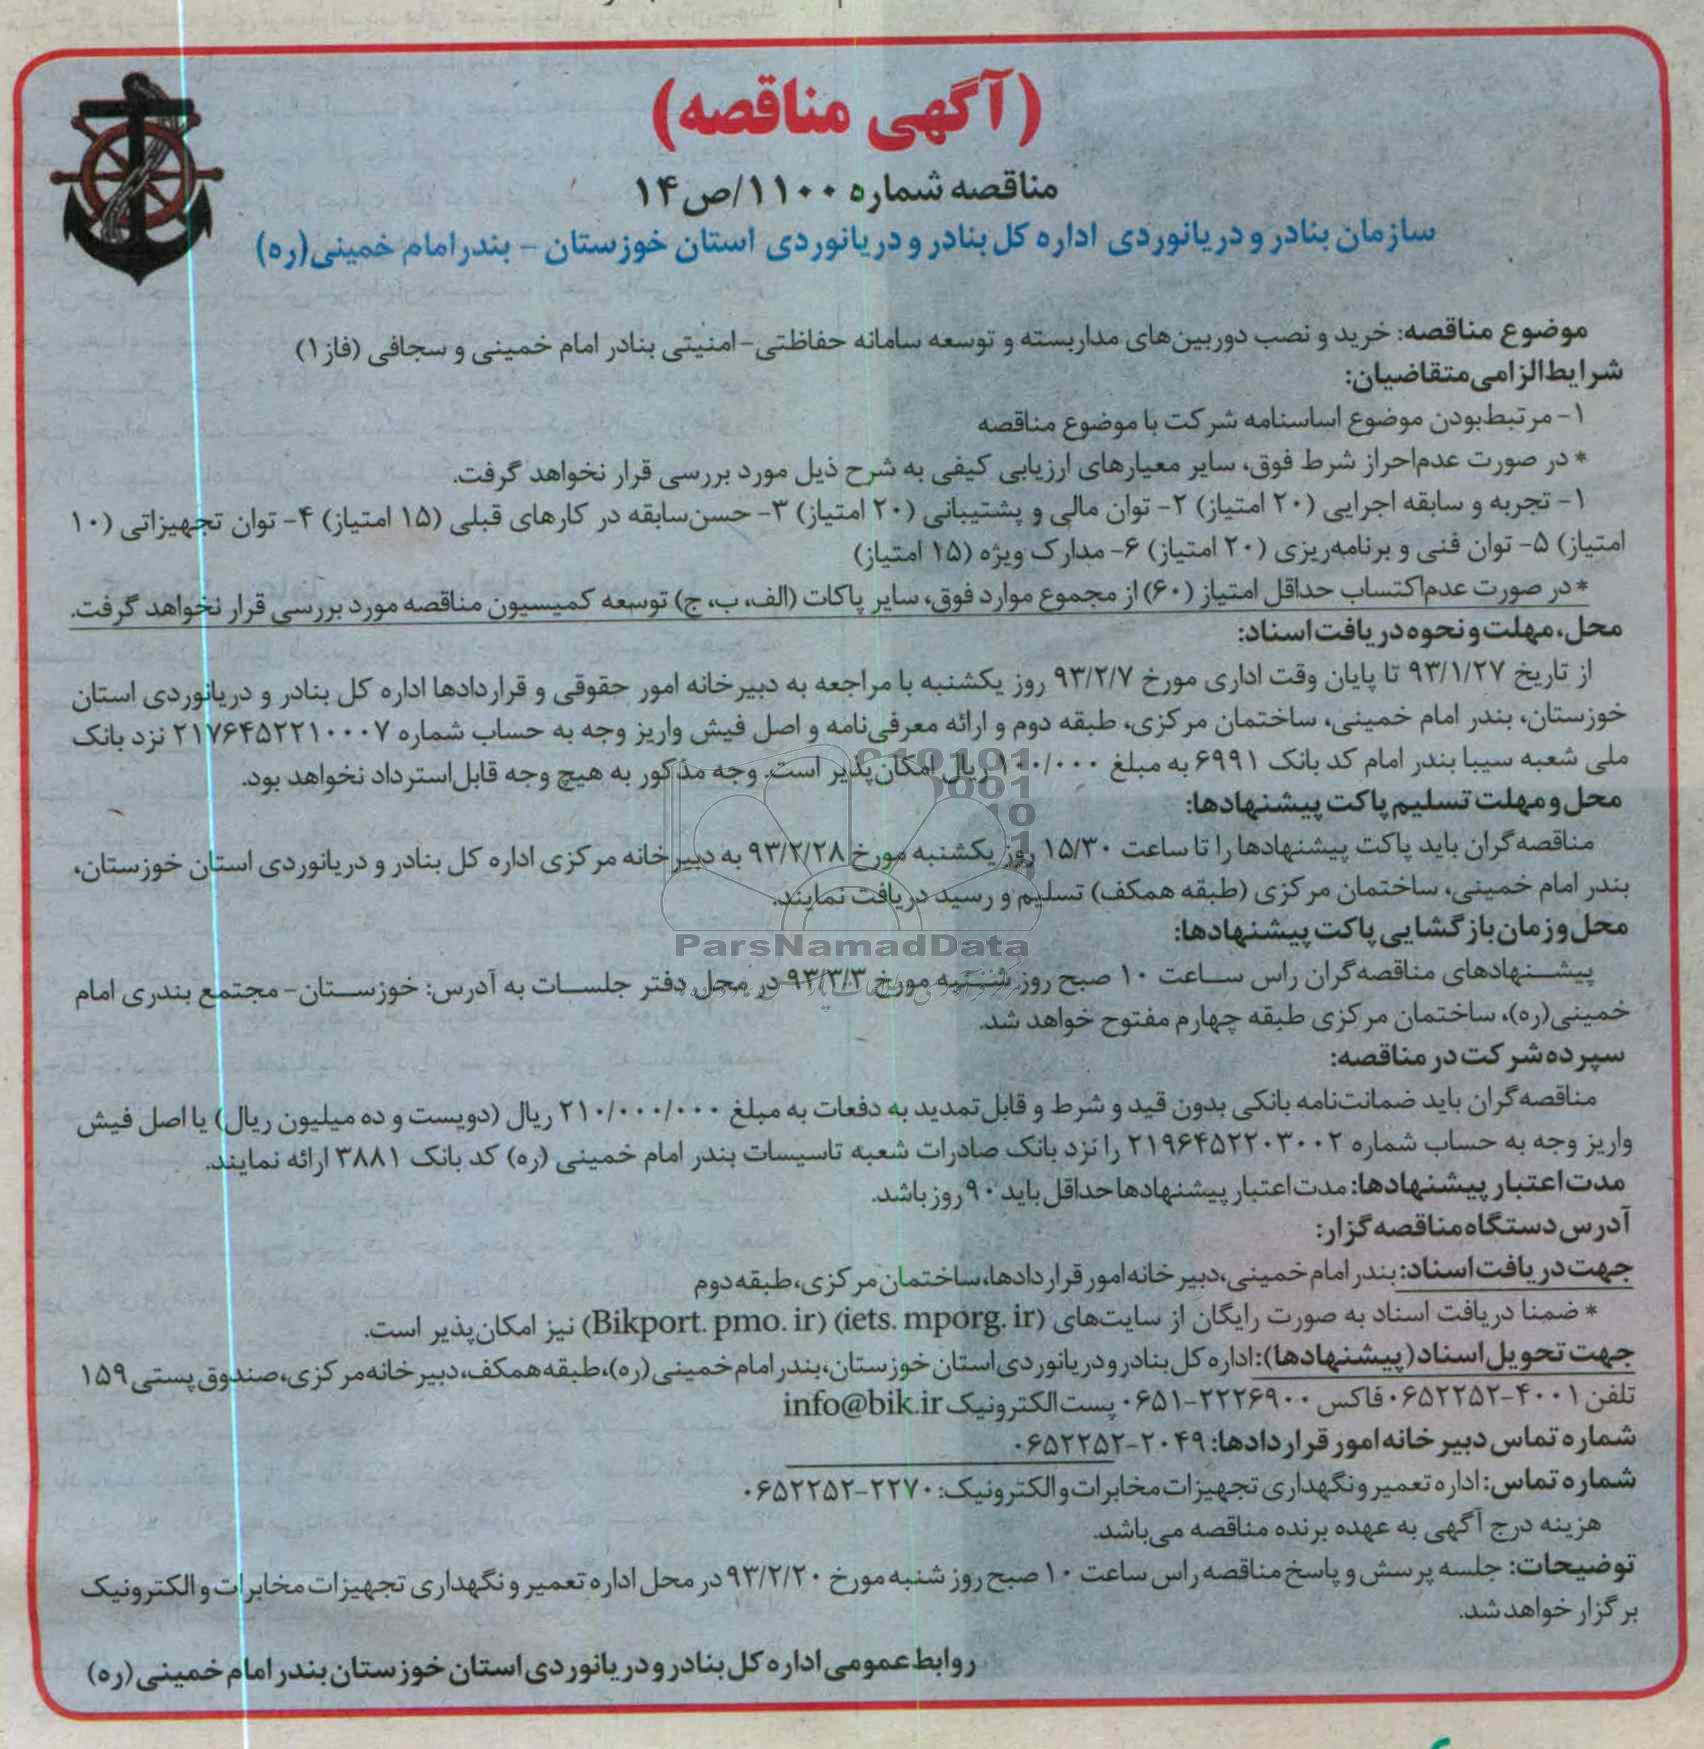 (آگهی مناقصه)
مناقصه شماره ۱۱۰۰/ص۱۴
سازمان بنادر و دریانوردی اداره کل بنادر و دریانوردی استان خوزستان – بندر امام خمینی(ره)
موضوع مناقصه: خرید و نصب دوربین‌های مداربسته و توسعه سامانه حفاظتی-امنیتی بنادر امام خمینی و سجافی (فاز۱)
شرایط الزامی متقاضیان:
۱- مرتبط‌بودن موضوع اساسنامه شرکت با موضوع مناقصه
* در صورت عدم‌احراز شرط فوق، سایر معیارهای ارزیابی کیفی به شرح ذیل مورد بررسی قرار نخواهد گرفت.
۱- تجربه و سابقه اجرایی (۲۰ امتیاز) ۲- توان مالی و پشتیبانی (۲۰ امتیاز) ۳- حسن‌سابقه در کارهای قبلی (۱۵ امتیاز) ۴- توان تجهیزاتی (۱۰
امتیاز) ۵- توان فنی و برنامه‌ریزی (۲۰ امتیاز) ۶- مدارک ویژه (۱۵ امتیاز)
*در صورت عدم‌اکتساب حداقل امتیاز (۶۰) از مجموع موارد فوق، سایر پاکات (الف، ب، ج) توسعه کمیسیون مناقصه مورد بررسی قرار نخواهد گرفت.
محل، مهلت و نحوه دریافت اسناد:
از تاریخ ۹۳/۱/۲۷ تا پایان وقت اداری مورخ ۹۳/۲/۷ روز یکشنبه با مراجعه به دبیرخانه امور حقوقی و قراردادها اداره کل بنادر و دریانوردی استان
خوزستان، بندر امام خمینی، ساختمان مرکزی، طبقه دوم و ارائه معرفی‌نامه و اصل فیش واریز وجه به حساب شماره ۲۱۷۶۴۵۲۲۱۰۰۰۷ نزد بانک
ملی شعبه سیبا بندر امام کد بانک ۶۹۹۱ به مبلغ ۱۰۰/۰۰۰ ریال امکان‌پذیر است. وجه مذکور به هیچ وجه قابل‌استرداد نخواهد بود.
محل و مهلت تسلیم پاکت پیشنهادها:
مناقصه‌گران باید پاکت پیشنهادها را تا ساعت ۱۵/۳۰ روز یکشنبه مورخ ۹۳/۲/۲۸ به دبیرخانه مرکزی اداره کل بنادر و دریانوردی استان خوزستان،
بندر امام خمینی، ساختمان مرکزی (طبقه همکف) تسلیم و رسید دریافت نمایند.
محل و زمان بازگشایی پاکت پیشنهادها:
پیشنهادهای مناقصه‌گران راس ساعت ۱۰ صبح روز شنبه مورخ ۹۳/۳/۳ در محل دفتر جلسات به آدرس: خوزستان- مجتمع بندری امام
خمینی(ره)، ساختمان مرکزی طبقه چهارم مفتوح خواهد شد.
سپرده شرکت در مناقصه:
مناقصه‌گران باید ضمانت‌نامه بانکی بدون قید و شرط و قابل‌تمدید به دفعات به مبلغ ۲۱۰/۰۰۰/۰۰۰ ریال (دویست و ده میلیون ریال) یا اصل فیش
واریز وجه به حساب شماره ۲۱۹۶۴۵۲۲۰۳۰۰۲ را نزد بانک صادرات شعبه تاسیسات بندر امام خمینی (ره) کد بانک ۳۸۸۱ ارائه نمایند.
مدت اعتبار پیشنهادها: مدت اعتبار پیشنهادها حداقل باید ۹۰ روز باشد.
آدرس دستگاه مناقصه‌گزار:
جهت دریافت اسناد: بندر امام خمینی، دبیرخانه امور قراردادها، ساختمان مرکزی، طبقه دوم
* ضمنا دریافت اسناد به صورت رایگان از سایت‌های (iets. mporg. ir) (Bikport. pmo. ir) نیز امکان‌پذیر است.
جهت تحویل اسناد (پیشنهادها): اداره کل بنادر و دریانوردی استان خوزستان، بندر امام خمینی (ره)، طبقه همکف، دبیرخانه مرکزی، صندوق پستی ۱۵۹
تلفن ۴۰۰۱-۰۶۵۲۲۵۲ فاکس ۲۲۲۶۹۰۰-۰۶۵۱ پست الکترونیک info@bik.ir
شماره تماس دبیرخانه امور قراردادها: ۲۰۴۹-۰۶۵۲۲۵۲
شماره تماس: اداره تعمیر و نگهداری تجهیزات مخابرات و الکترونیک: ۲۲۷۰-۰۶۵۲۲۵۲
هزینه درج آگهی به عهده برنده مناقصه می‌باشد.
توضیحات: جلسه پرسش و پاسخ مناقصه راس ساعت ۱۰ صبح روز شنبه مورخ ۹۳/۲/۲۰ در محل اداره تعمیر و نگهداری تجهیزات مخابرات و الکترونیک
برگزار خواهد شد.
روابط عمومی اداره کل بنادر و دریانوردی استان خوزستان بندر امام خمینی (ره)
ParsNamadData